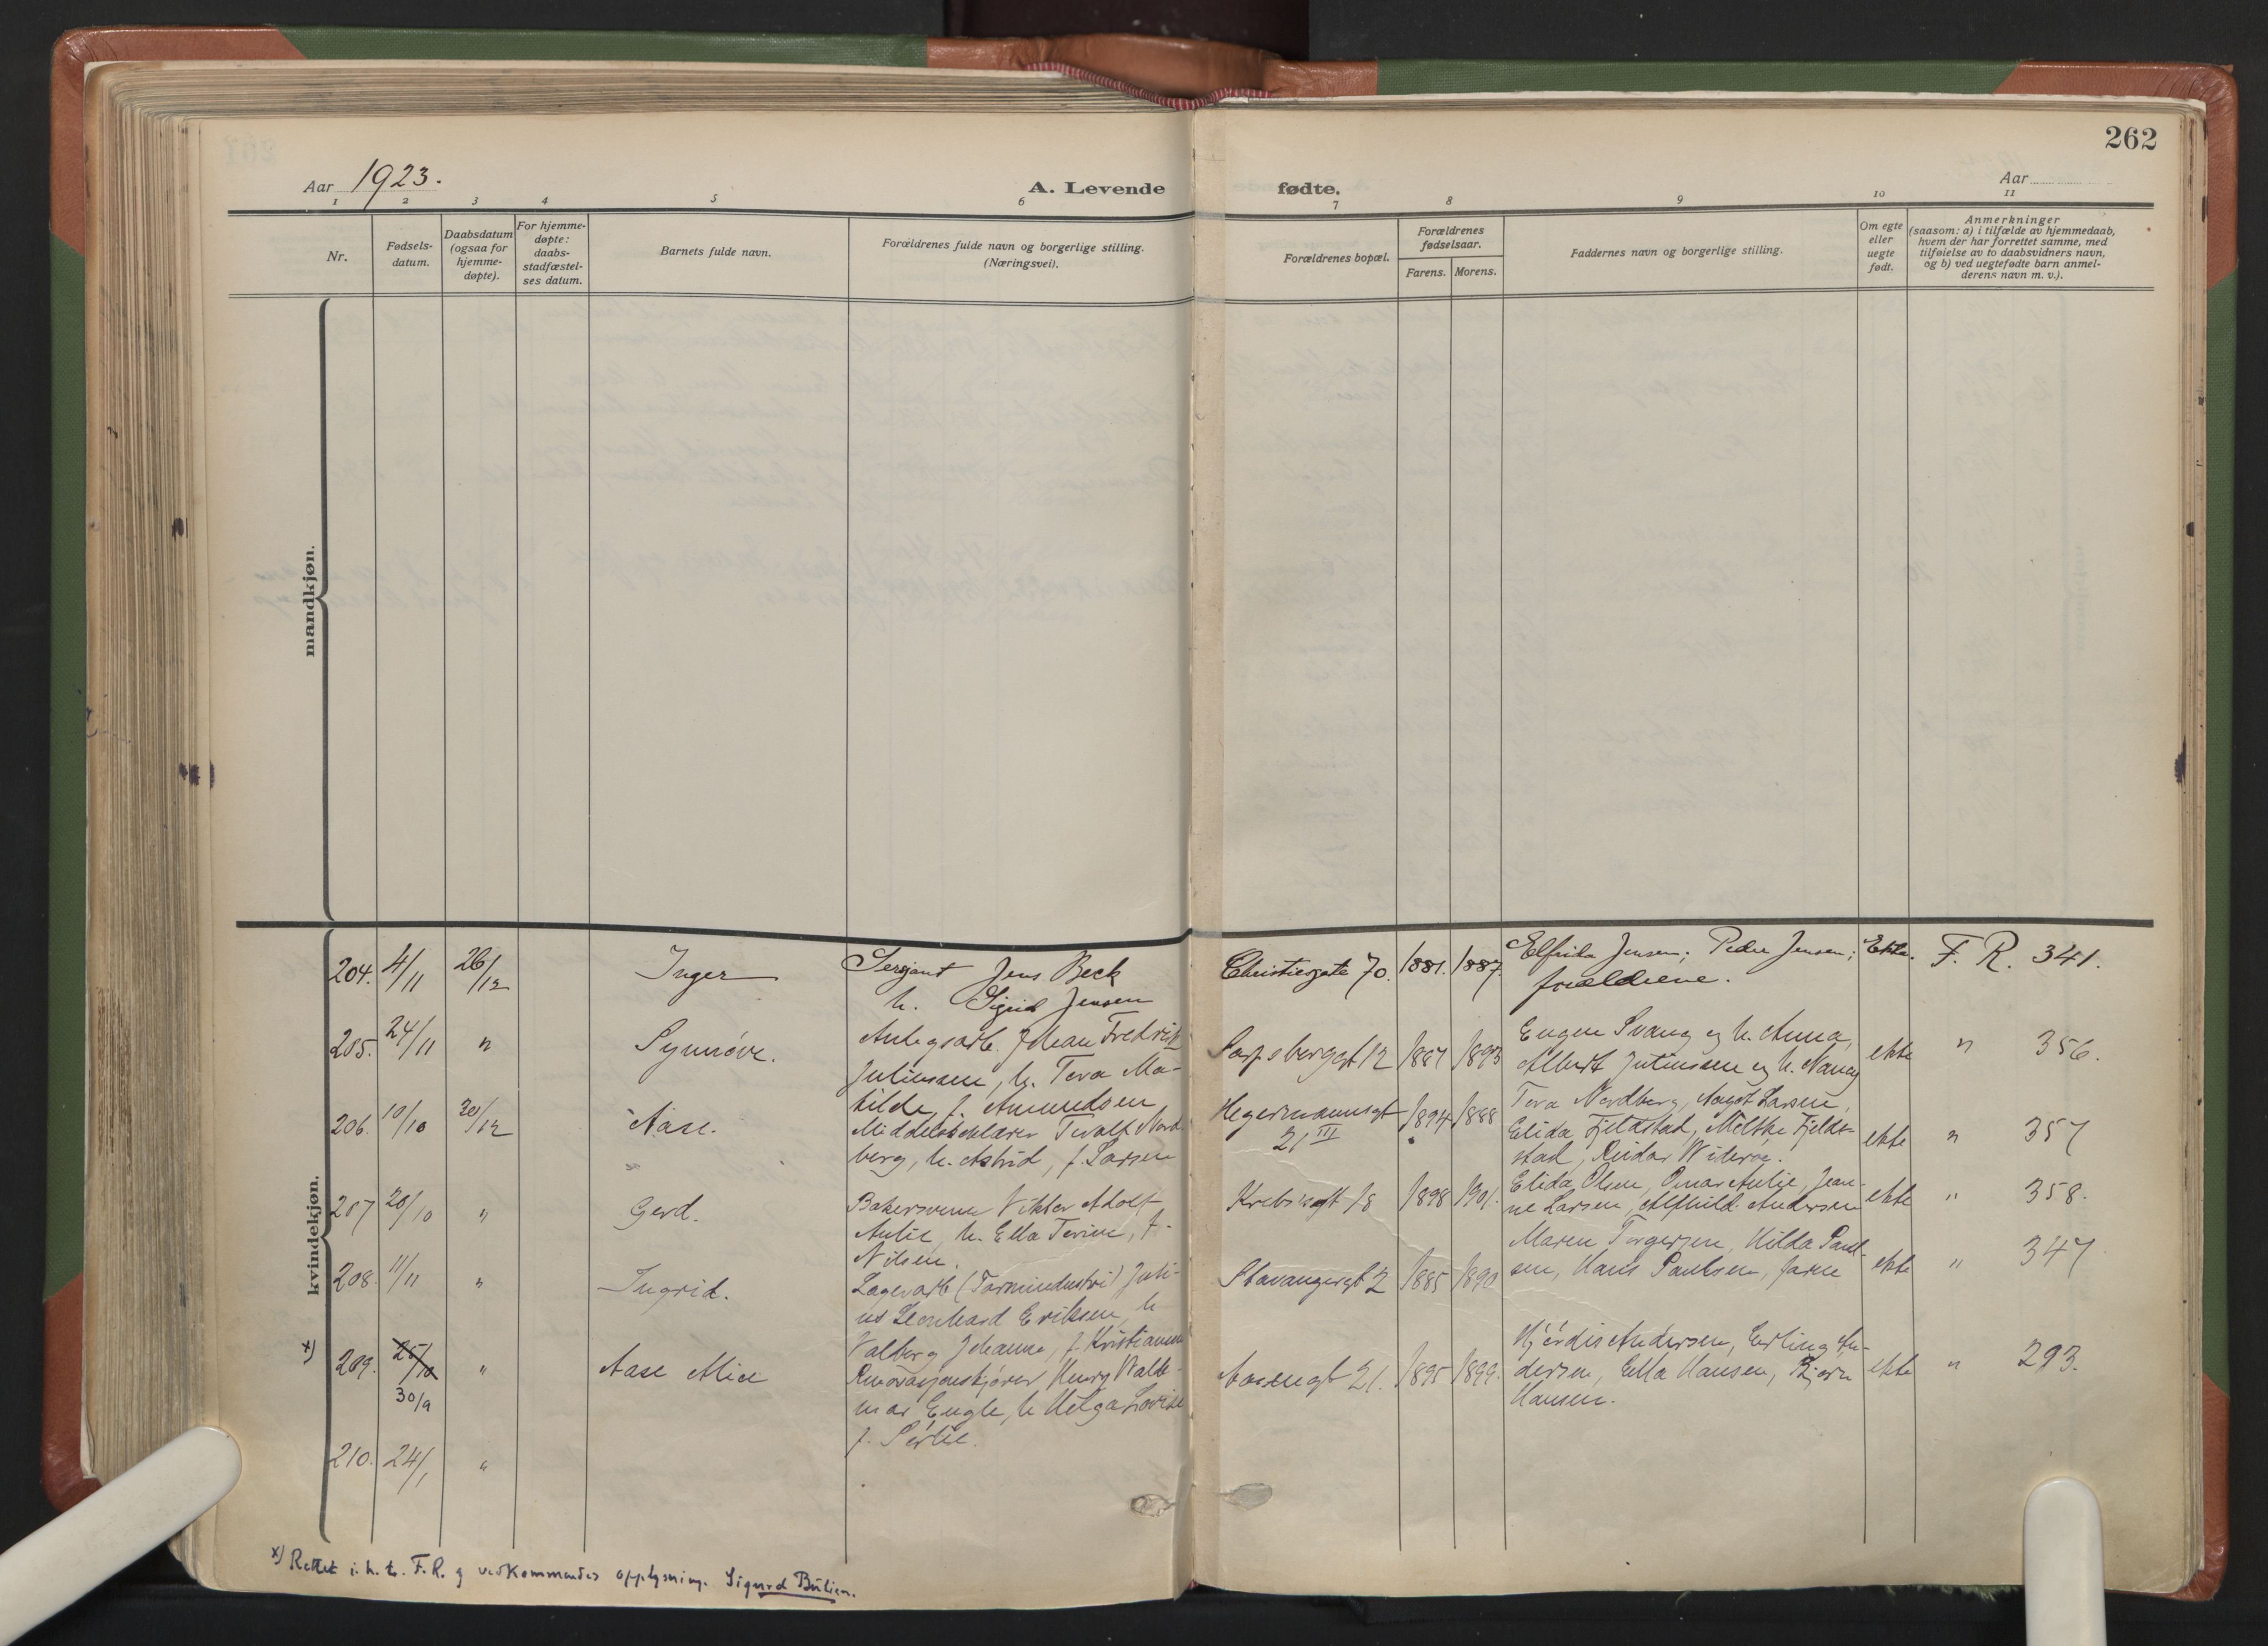 262
Aar 1923.
A. Levende fødte.
Aar
1 2 3 4 5 6 7 8 9 10 11
Nr.
Fødsels-
datum.
Daabsdatum
(ogsaa for
hjemme-
døpte).
For hjemme-
døpte:
daabs-
stadfæstel-
ses datum.
Barnets fulde navn.
Forældrenes fulde navn og borgerlige stilling.
(Næringsvei).
Forældrenes bopæl.
Forældrenes
fødselsaar.
Farens. Morens.
Faddernes navn og borgerlige stilling.
Om egte
eller
uegte
født.
Anmerkninger
(saasom: a) i tilfælde av hjemmedaab,
hvem der har forrettet samme, med
tilføielse av to daabsvidners navn,
og b) ved uegtefødte barn anmel-
derens navn m. v.).
mandkjøn.
kvindekjøn.
204. 4/11 26/12 Inger
Sergeant Jens Beck
h. Sigrid Jensen
Christiesgate 70. 1881. 1887.
Elfrida Jensen; Peder Jensen;
forældrene.
Ekte. F. R. 341.
205. 24/11 " Synnöve.
Anlegsarb. Johan Fredrik
Juliussen, h. Tora Ma-
tilde, f. Amundsen
Sarpsborggt 12 1887 1893
Eugen Svang og h. Anna,
Albert Juliussen og h. Nancy
ekte " 356.
206. 10/10 30/12 Aase.
Nord-
berg, h. Astrid, f. Larsen
Hegermannsgt
21 III
1894 1888
Tora Nordberg, Aagot Larsen,
Elida Fjeldstad, Fjeld-
stad, Reidar Widerøe.
ekte " 357
207 20/10 " Gerd.
Bakersvenn Viktor Adolf
Aulie, h. Ella Terine, f.
Nilsen.
Krebsgt 18 1898 1901.
Elida Olsen, Omar Aulie, Jean-
ne Larsen, Alfhild Andersen
ekte " 358.
208. 11/11 " Ingrid.
Lagerarb (Tarmindustri) Juli-
us Leonhard Eriksen, h
Valborg Johanne, f. Kristiansen
Stavangergt 2 1885 1890
Maren Torgersen, Hilda Paul-
sen, Hans Paulsen, faren
ekte " 347
x) 209. 25/10 30/9 " Aase Alice
Renovasjonskjører Henry Walde-
mar Engle, h Helga Lovise
f. Sörlie.
Aasengt 21. 1895 1899.
Hjördis Andersen, Erling An-
dersen, Ella Hansen, Bjørn
Hansen.
ekte " 293.
210. 24/1 "
x) Rettet i. h. t. F. R. g vedkommendes opplysning. Sigurd Bülien.